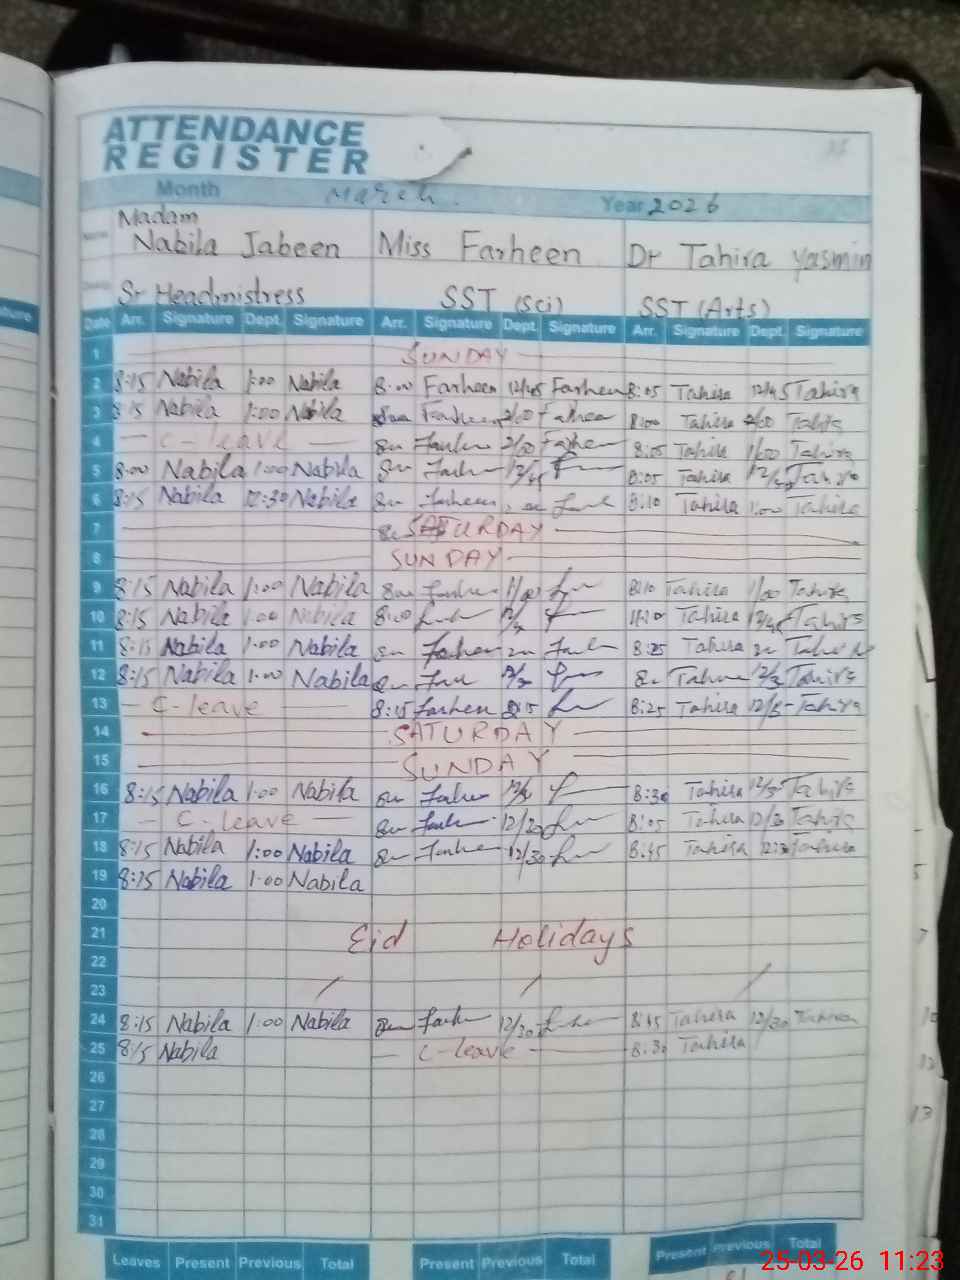 ATTENDANCE
REGISTER
Month March Year 2026
Madam
Nabila Jabeen Miss Farheen Dr Tahira Yasmin
Sr Headmistress SST (Sci) SST (Arts)
Date Arr. Signature Dept. Signature Arr. Signature Dept. Signature Arr. Signature Dept. Signature
1 SUNDAY
2 8:15 Nabila 1:00 Nabila 8:00 Farheen 12/45 Farheen 8:05 Tahira 12/45 Tahira
3 8:15 Nabila 1:00 Nabila Farheen 2/00 Farheen 8:00 Tahira 2/00 Tahira
4 C-leave 2/00 8:05 Tahira 1/00 Tahira
5 8:00 Nabila 1:00 Nabila 12/45 8:05 Tahira Tahira
6 8:15 Nabila 12:30 Nabila Farheen 8:10 Tahira 1:00 Tahira
7 SATURDAY
8 SUNDAY
9 8:15 Nabila 1:00 Nabila 1/00 8:10 Tahira 1/00 Tahira
10 8:15 Nabila 1:00 Nabila 8:00 Tahira 12/45 Tahira
11 8:15 Nabila 1:00 Nabila Farheen 8:25 Tahira Tahira
12 8:15 Nabila 1:00 Nabila Tahira Tahira
13 C-leave 8:15 Farheen 8:25 Tahira Tahira
14 SATURDAY
15 SUNDAY
16 8:15 Nabila 1:00 Nabila 8:30 Tahira Tahira
17 C-leave 12/30 8:05 Tahira 12/30 Tahira
18 8:15 Nabila 1:00 Nabila 12/30 8:45 Tahira 12:30 Tahira
19 8:15 Nabila 1:00 Nabila
20
21 Eid Holidays
22
23
24 8:15 Nabila 1:00 Nabila 12/30 8:45 Tahira 12/30 Tahira
25 8:15 Nabila C-leave 8:30 Tahira
26
27
28
29
30
31
Leaves Present Previous Total Present Previous Total Present Previous Total
25-03-26 11:23